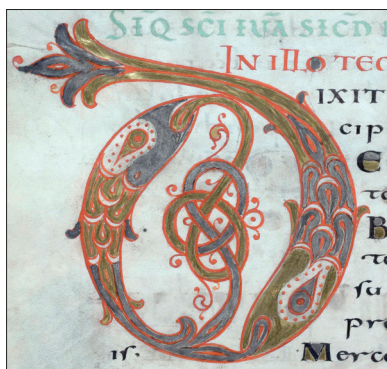 SĪQ SCĪ IUĀ SICD
IN ILLO TEC
D IXIT
cip
E
te
B
te
su
pre
is. Merc